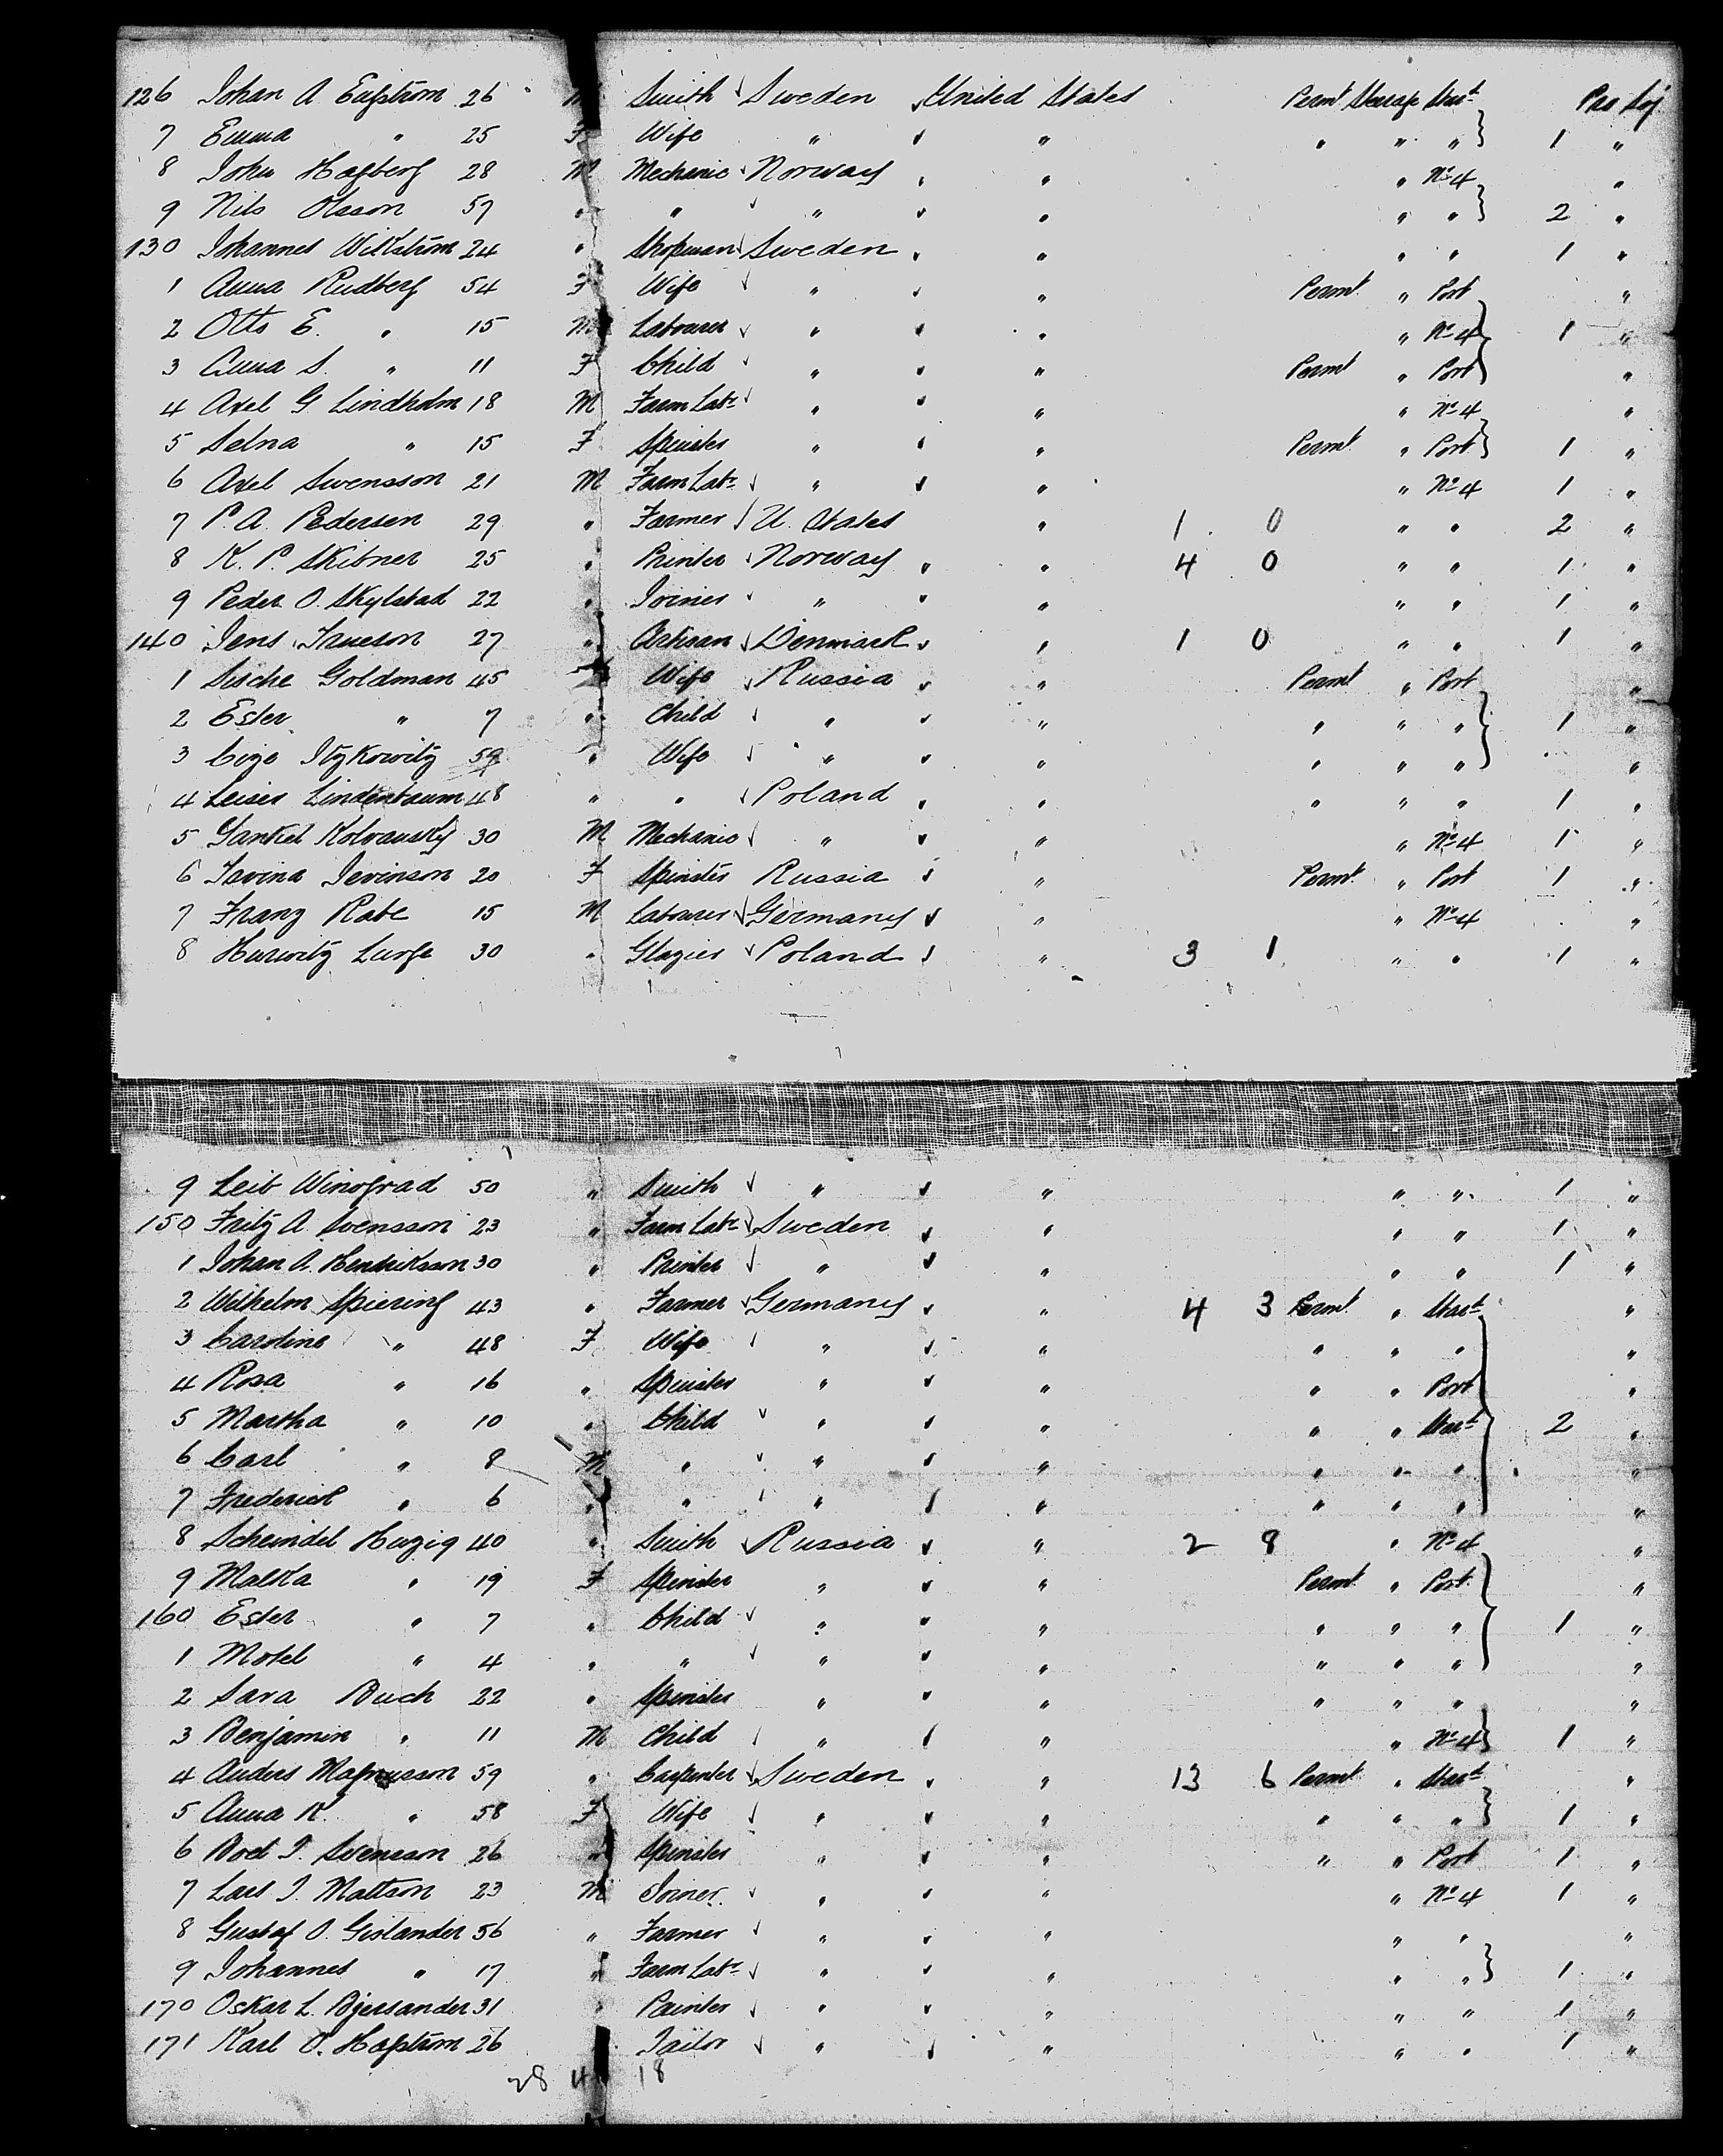 126 Johan A 26 M Smith Sweden United States Permt Steerage Starbd Pro Soj
7 Emma " 25 F Wife " " " " " 1 "
8 John Hagberg 28 M Mechanic Norway " " No 4 "
9 Nils Olsson 57 " " " " " " 2 "
130 Johannes Wikström 24 " Shopman Sweden " " " 1 "
1 Anna Rudberg 54 F Wife " " Permt " Port "
2 Otto E. " 15 M Labourer " " " No 4 1 "
3 Anna S. " 11 F Child " " Permt " Port "
4 Axel G Lindholm 18 M Farm Labr " " " No 4 "
5 Selna " 15 F Spinster " " Permt " Port 1 "
6 Axel Swensson 21 M Farm Labr " " " No 4 1 "
7 P. A. Pedersen 29 " Farmer U. States " 1 0 " " 2 "
8 K. P. Skibner 25 " Printer Norway " 4 0 " " 1 "
9 Peder O. Skylstad 22 " Joiner " " " " 1 "
140 Jens 27 " Artisan Denmark " 1 0 " " 1 "
1 Sische Goldman 45 Wife Russia " Permt " Port "
2 Ester " 7 " Child " " " " " 1 "
3 Itzkowitz 59 " Wife " " " " " "
4 Leiser Lindenbaum 48 " " Poland " " " " 1 "
5 Yankel 30 M Mechanic " " " No 4 1 "
6 20 F Spinster Russia " Permt " Port 1 "
7 Franz Rabe 15 M Labourer Germany " " No 4 "
8 Hurwitz 30 " Glazier Poland " 3 1 " " 1 "
9 Leib Winograd 50 " Smith " " " " 1 "
150 Fritz A. Svensson 23 " Farm Labr Sweden " " " 1 "
1 Johan A. Hendriksson 30 " Printer " " " " 1 "
2 Wilhelm Spiering 43 " Farmer Germany " 4 3 Permt " Starbd "
3 Caroline " 48 F Wife " " " " " "
4 Rosa " 16 " Spinster " " " " Port "
5 Martha " 10 " Child " " " " Starbd 2 "
6 Carl " 8 M " " " " " " "
7 Frederick " 6 " " " " " " " "
8 Scheindel 40 " Smith Russia " 2 8 " No 4 "
9 Malka " 19 F Spinster " " Permt " Port "
160 Ester " 7 " Child " " " " " 1 "
1 Motel " 4 " " " " " " " "
2 Sara Buch 22 " Spinster " " " " " "
3 Benjamin " 11 M Child " " " No 4 1 "
4 Anders Magnusson 59 " Carpenter Sweden " 13 6 Permt " Starbd "
5 Anna K " 58 F Wife " " " " " 1 "
6 Svensson 26 " Spinster " " " " Port 1 "
7 Lars J. Mattson 23 M Joiner " " " No 4 1 "
8 Gustaf O. Gislander 56 " Farmer " " " " "
9 Johannes " 17 " Farm Labr " " " " 1 "
170 Oskar L. Bjersander 31 " Painter " " " " 1 "
171 Karl O. Hafström 26 Tailor " " " " 1 "
28 4 18